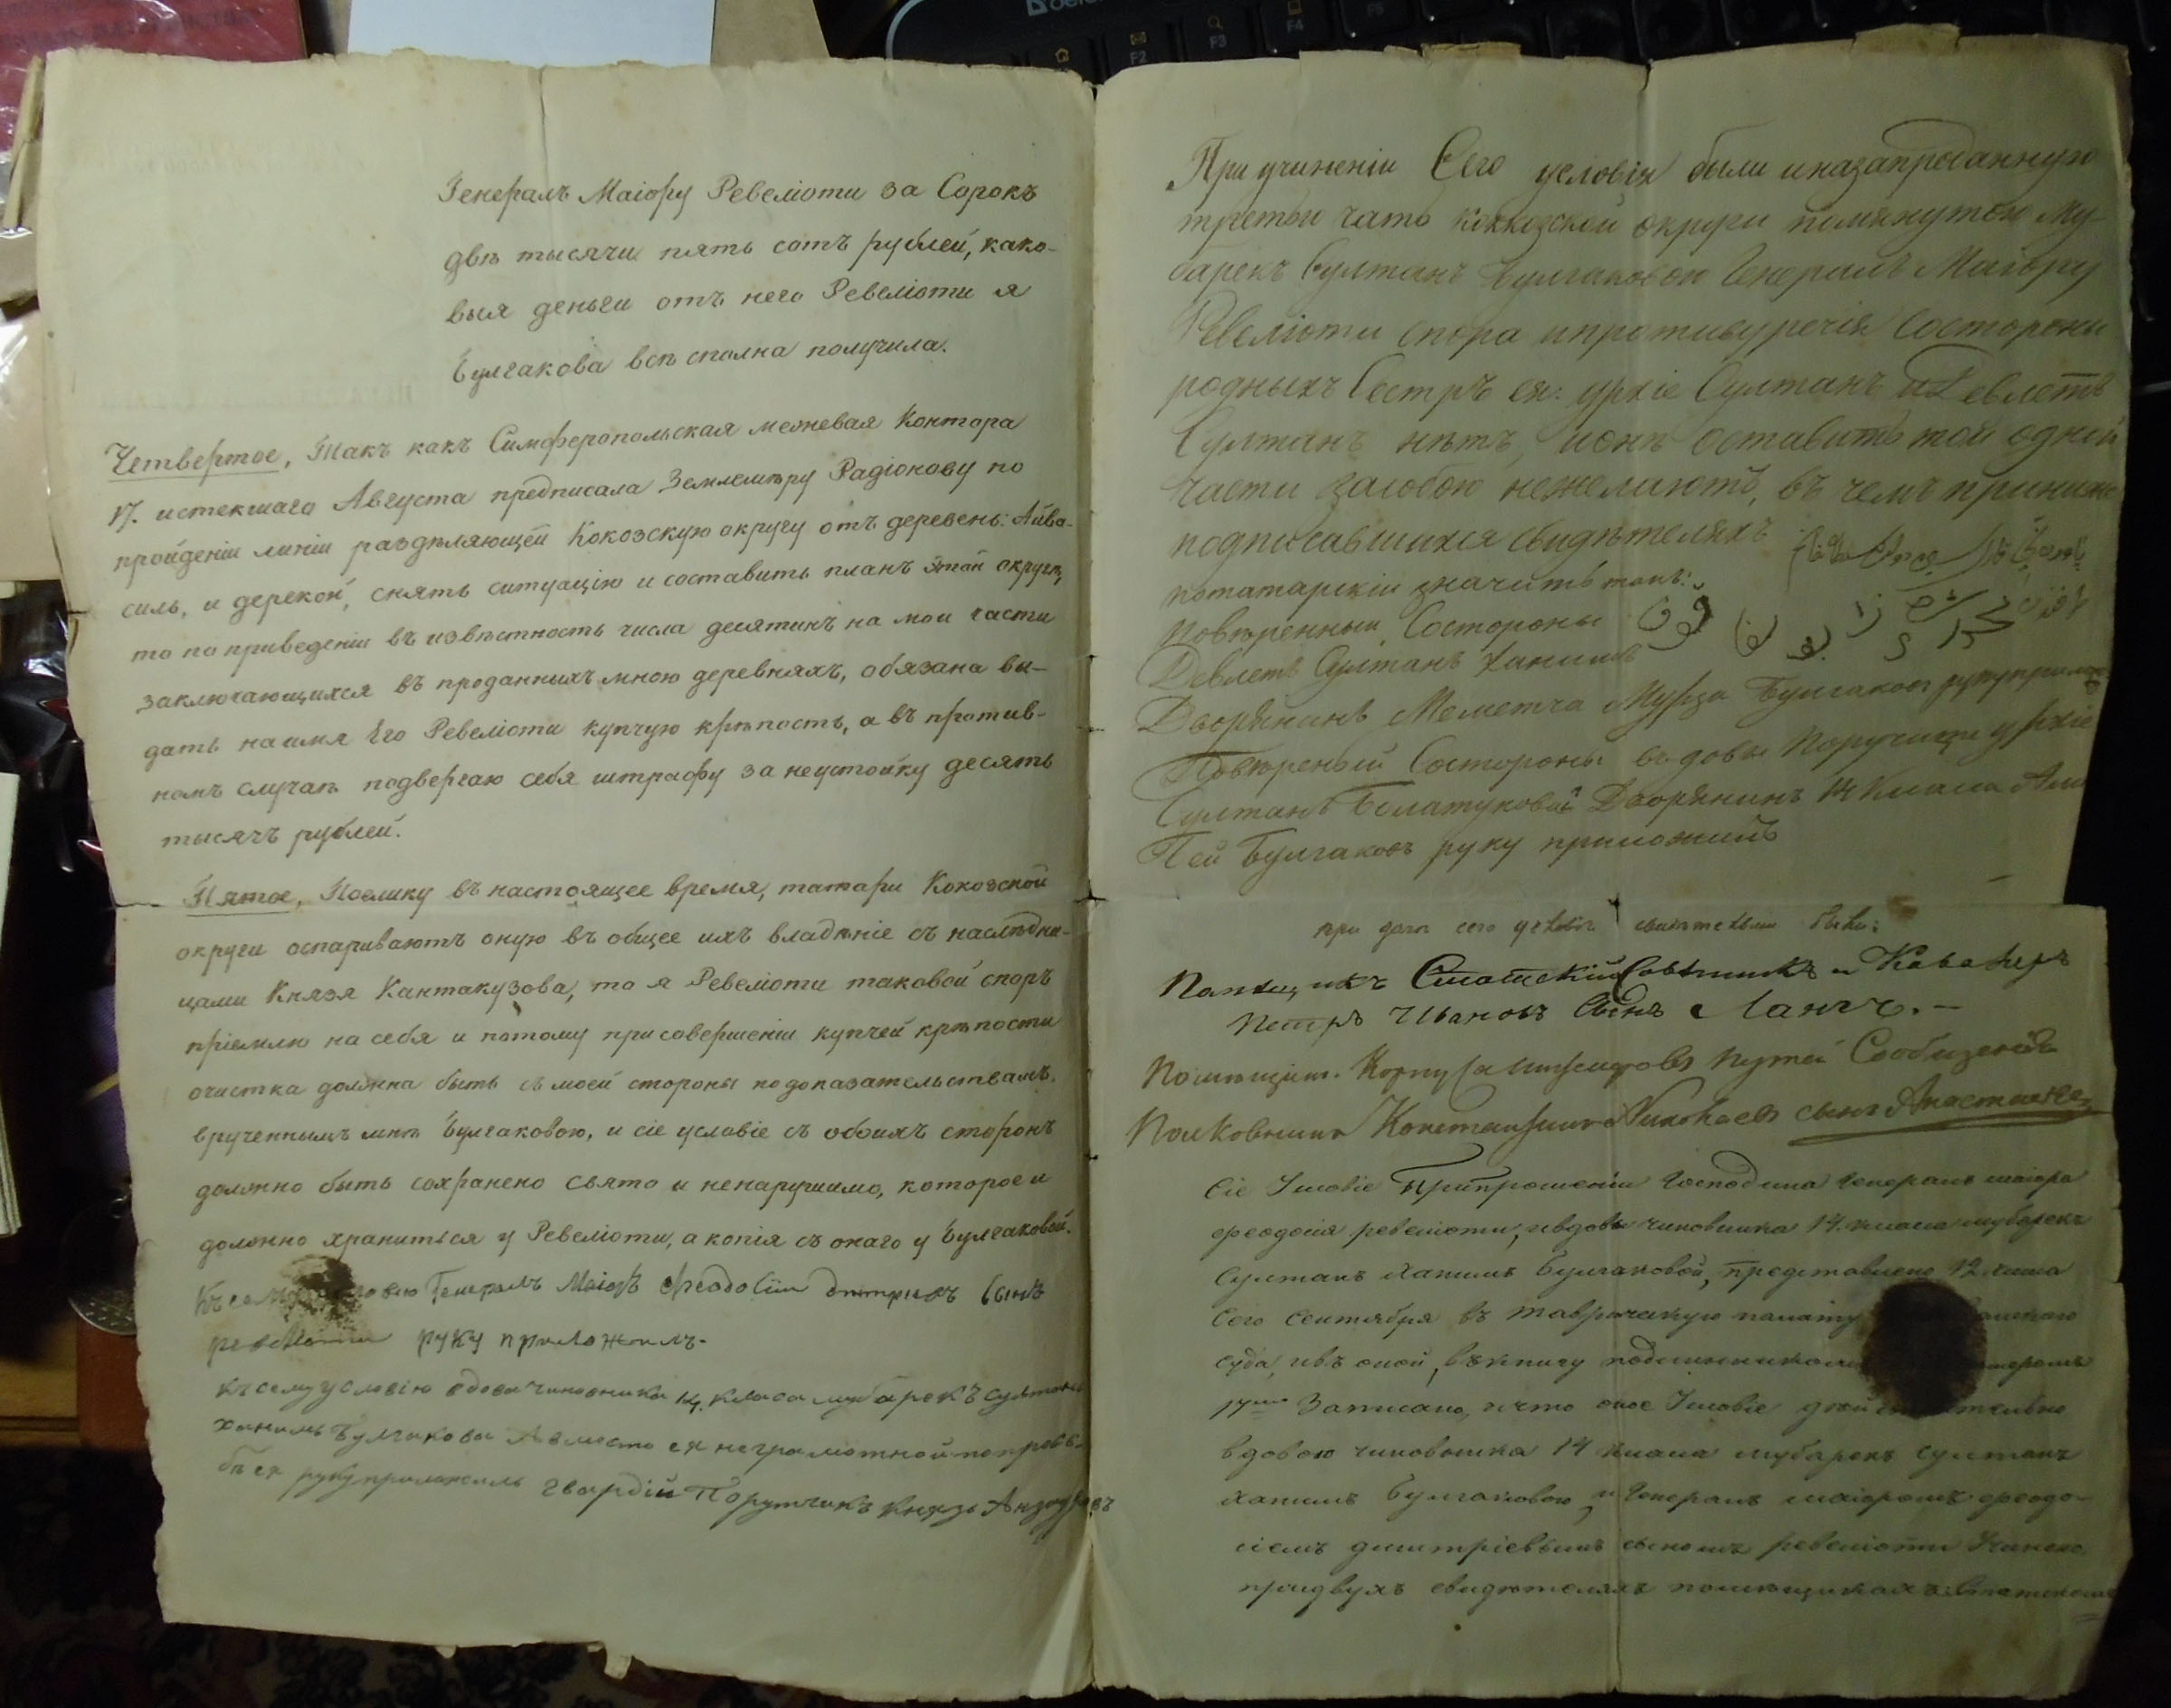 Генералъ Маіору Ревеліоти за Сорокъ
двѣ тысячи пять сотъ рублей, како-
выя деньги отъ него Ревеліоти я
Булгакова всѣ сполна получила.
Четвертое, Такъ какъ Симферопольская межевая Контора
17. истекшаго Августа предписала Землемѣру Радіонову по
пройденіи линіи раздѣляющей Кокозскую округу отъ деревень: Айва-
силь, и дерекой, снять ситуацію и составить планъ этой округи,
то по приведеніи въ извѣстность числа десятинъ на мои части
заключающихся въ проданныхъ мною деревняхъ, обязана вы-
дать на имя Его Ревеліоти купчую крѣпость, а въ против-
номъ случаѣ подвергаю себя штрафу за неустойку десять
тысячъ рублей.
Пятое, Поелику въ настоящее время, татары Кокозской
округи оспариваютъ оную въ общее ихъ владѣніе съ наслѣдни-
цами Князя Кантакузова, то я Ревеліоти таковой споръ
пріемлю на себя и потому при совершеніи купчей крѣпости
очистка должна быть съ моей стороны по доказательствамъ,
врученнымъ мнѣ Булгаковою, и сіе условіе съ обоихъ сторонъ
должно быть сохранено свято и ненарушимо, которое и
должно храниться у Ревеліоти, а копія съ онаго у Булгаковой.
Генералъ Маіоръ Феодосій Дмитріевъ сынъ
Ревеліоти руку приложилъ.
къ сему условію вдова чиновника 14. класа мубарекъ султанъ
ханымъ Булгакова а вместо ея неграмотной по прозь-
бѣ ея руку приложилъ Гвардіи Порутчикъ Князь
При учиненіи Сего условія были и на запроданную
третью часть коккозской округи помянутою Му-
барекъ Султанъ Булгаковой Генералъ Маіору
Ревеліоти спора и противуречія Состороны
родныхъ Сестръ ея: урхіе Султанъ и Девлетъ
Султанъ нѣтъ, и онѣ оставить той одной
части засобою нежелаютъ, въ чемъ при ниже
подписавшихся свидѣтеляхъ
потатарскіи значитъ такъ:
повѣренный Состороны
Девлетъ Султанъ Ханымъ
Дворянинъ Меметча Мурза Булгаковъ руку приложилъ
Повѣреный Состороны вдовы Поручицы урхіе
Султанъ Болатуковой Дворянинъ 14 Класа Али
Бей Булгаковъ руку приложилъ
при дачи сего условія свидѣтельми были:
Помещикъ Статскій Совѣтникъ и Кавалеръ
Петръ Ивановъ Сынъ Лангъ.
Помѣщикъ Корпуса Инженеровъ Путей Сообщенія
Полковникъ Константинъ Николаевъ сынъ
Сіе Условіе При прошеніи Господина Генералъ маіора
феодосія ревеліоти, и вдовы чиновника 14. класа мубарекъ
Султанъ Ханымъ Булгаковой, представлено 12. числа
Сего Сентября въ Таврическую палату
суда, ивъ оной, въ книгу подлинникомъ
17 Записано, и что оное Условіе
вдовою чиновника 14 класа мубарекъ султанъ
ханымъ Булгаковою и Генералъ маіоромъ феодо-
сіемъ дмитріевымъ сыномъ ревеліоти Учинено
придвухъ свидѣтеляхъ помѣщикахъ: Статскомъ